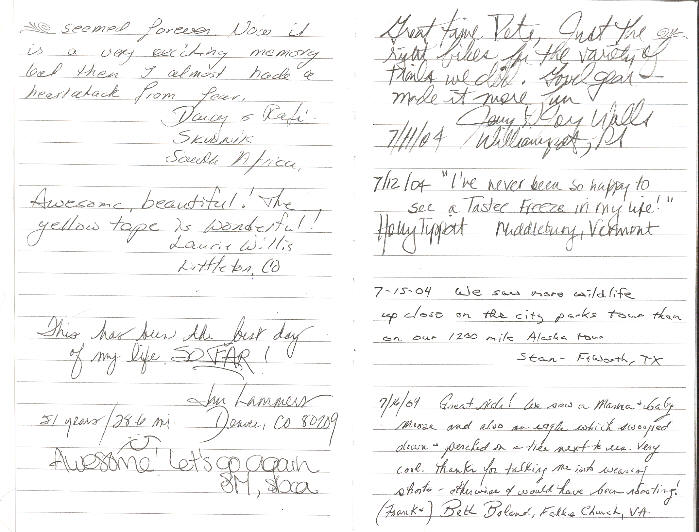 seemed forever. Now it
is a very exciting memory
but then I almost had a
heartattack from fear.
Darcy & Rafi
Skudnik
South Africa.
Awesome, beautiful! The
yellow tape is wonderful!
Laurie Willis
Littleton, CO
This has been the best day
of my life SO FAR!
Lammers
51 years / 28.6 mi Denver, CO 80209
Awesome! Let's go again
Great time Pete, Just the
right bikes for the variety of
trails we did. Good gear
made it more fun
& Roy Walls
7/11/04 Williamsport, PA
7/12/04 "I've never been so happy to
see a Tastee Freeze in my life!"
Holly Tippett Middlebury, Vermont
7-15-04 We saw more wildlife
up close on the city parks tour than
on our 1200 mile Alaska tour
Stan - Ft Worth, TX
7/16/04 Great ride! We saw a Mama + baby
moose and also an eagle which swooped
down + perched in a tree next to us. Very
cool. Thanks for talking me into wearing
shorts - otherwise I would have been roasting!
(Frank +) Beth Boland, Falls Church, VA.